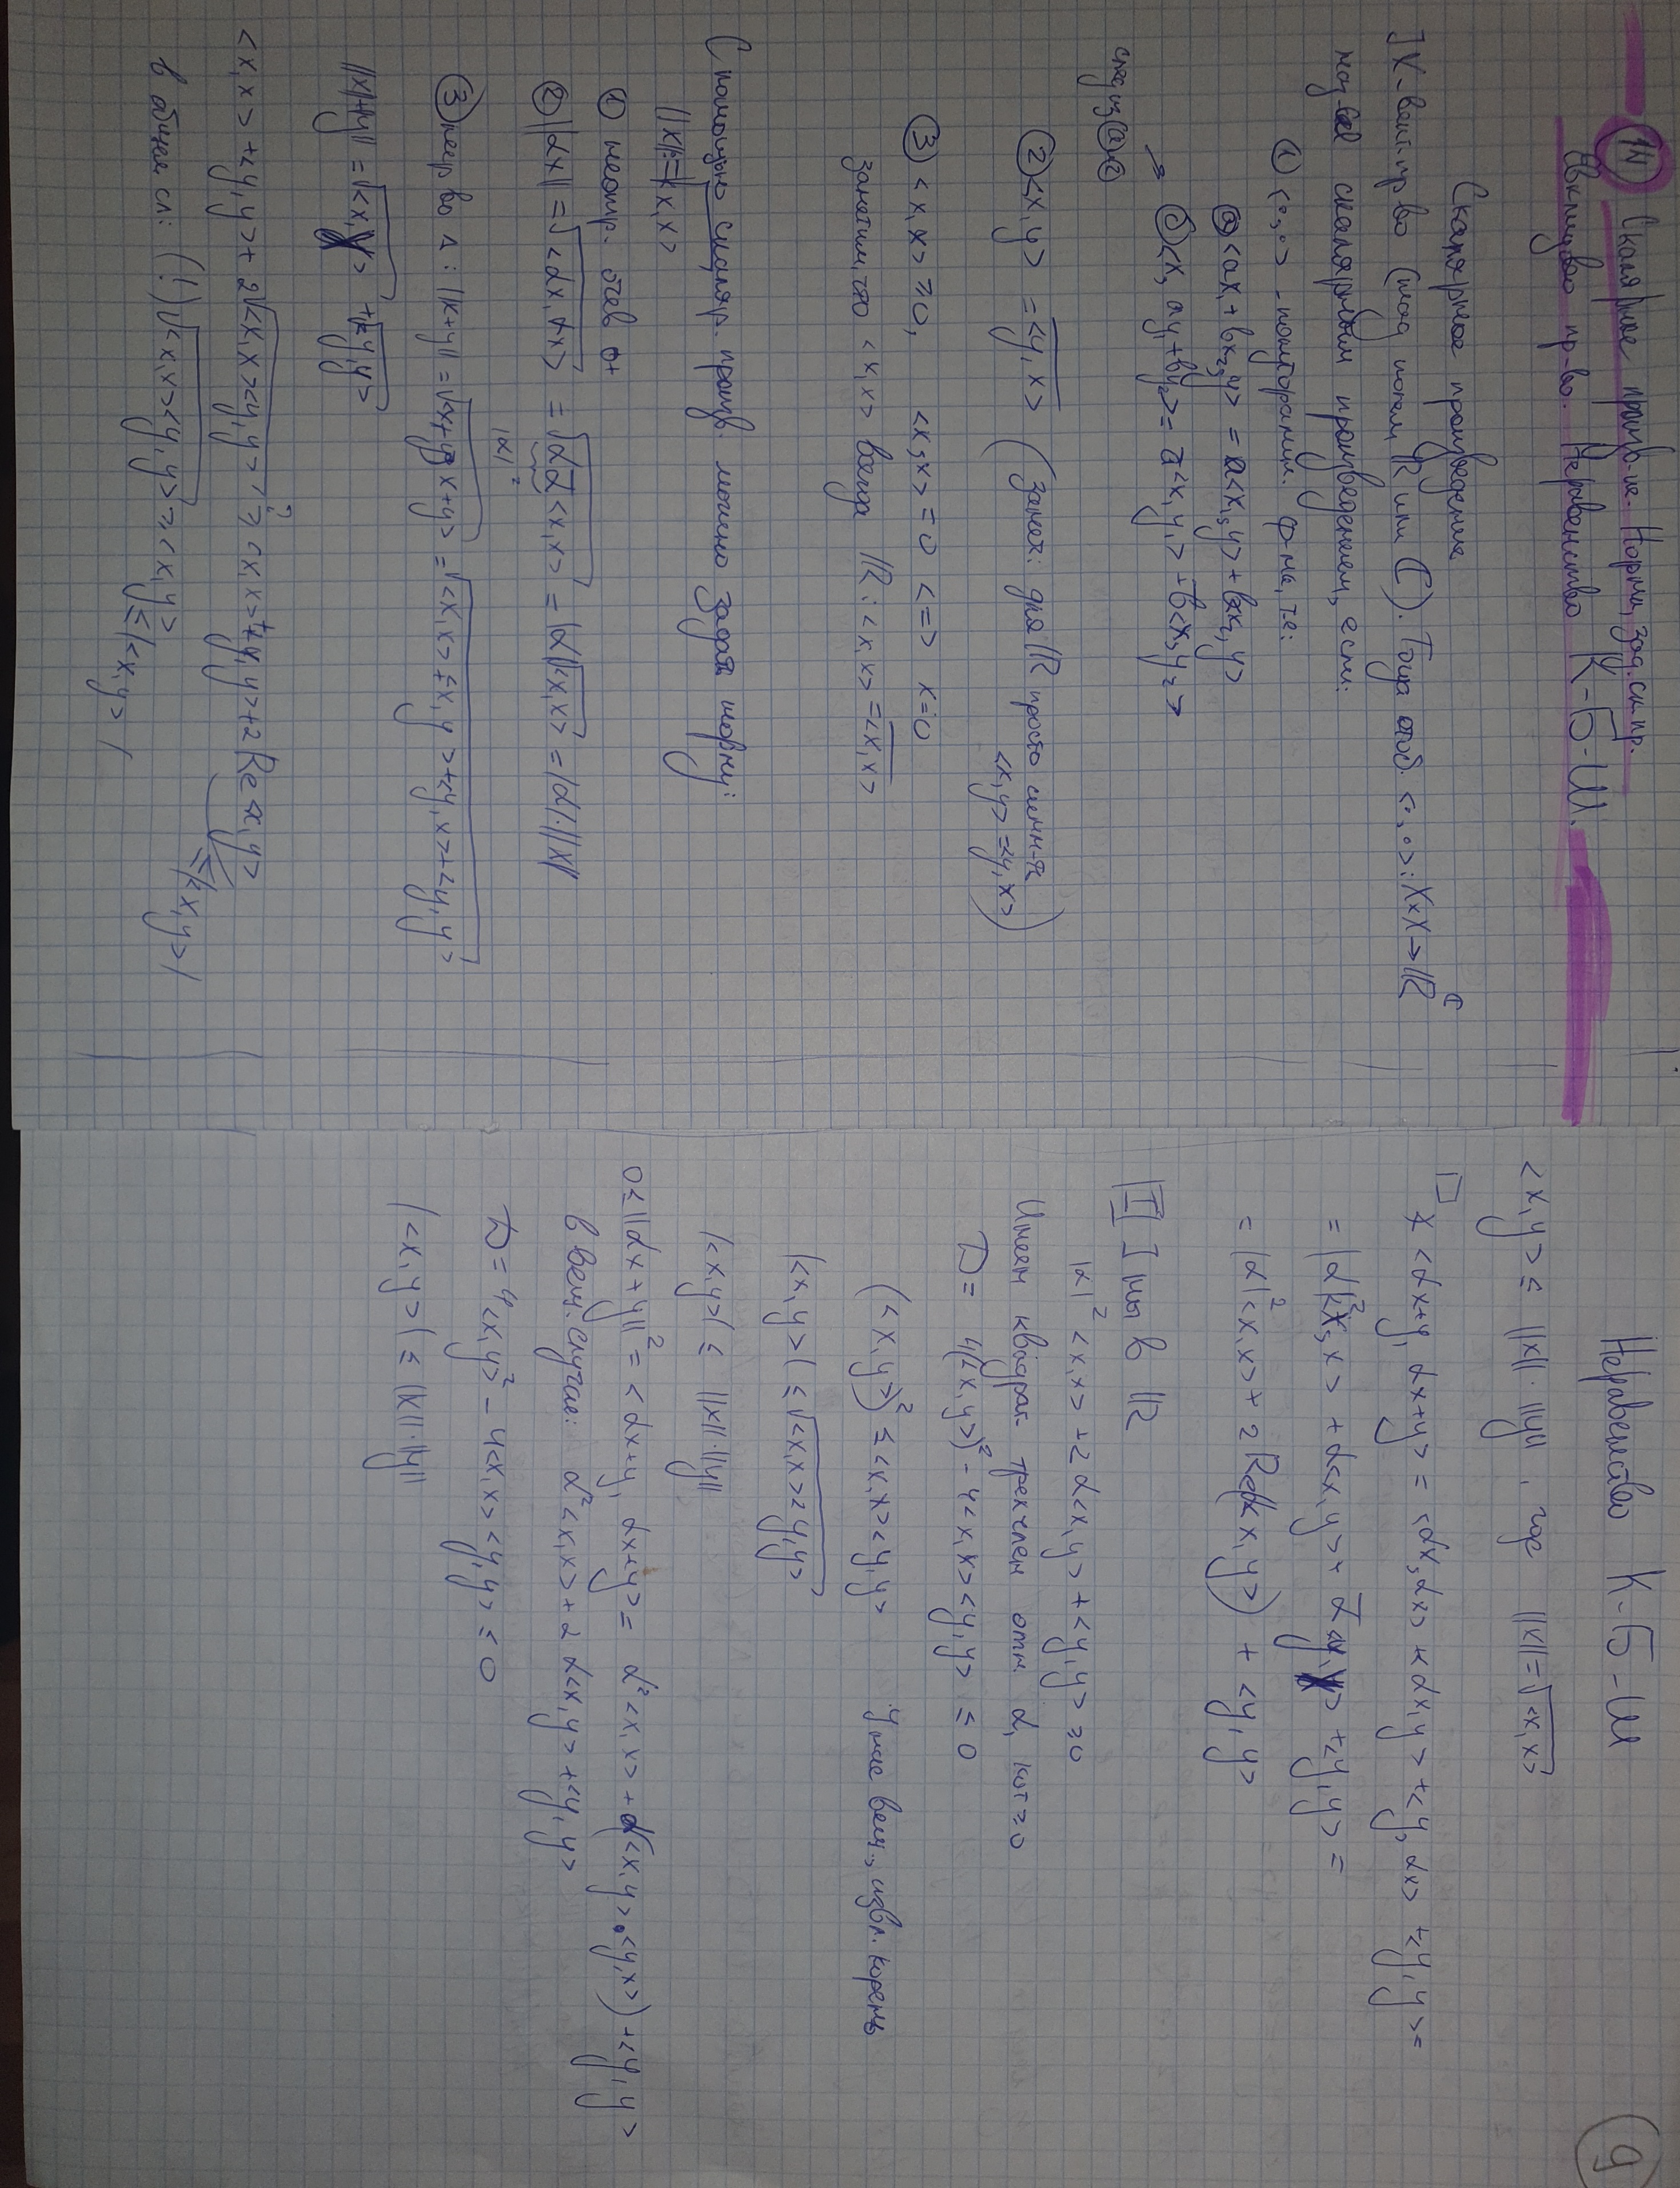 14 Скалярное произв-ие. Норма, зад. ск. пр.
Евклидово пр-во. Неравенство К-Б-Ш.
Скалярное произведение
] X - вект. пр-во (над полем ℝ или ℂ). Тогда отоб. <·,·>: X×X → ℝ
ℂ
наз-ся скалярным произведением, если:
① <·,·> - полуторалин. ф-ма, т.е:
ⓐ <ax₁ + bx₂, y> = a<x₁, y> + b<x₂, y>
ⓑ <x, ay₁ + by₂> = a̅<x, y₁> + b̅<x, y₂>
след из ⓐ и ②
② <x, y> = \overline{<y, x>} (замеч: для ℝ просто симм-я
<x, y> = <y, x>)
③ <x, x> ≥ 0, <x, x> = 0 <=> x = 0
заметим, что <x, x> всегда ℝ: <x, x> = \overline{<x, x>}
С помощью скаляр. произв. можно задать норму:
||x|| := √<x, x>
① неотр.
② ||αx|| = √<αx, αx> = √αα̅<x, x> = |α|√<x, x> = |α|·||x||
|α|²
③ нер-во Δ: ||x+y|| = √<x+y, x+y> = √<x, x> + <x, y> + <y, x> + <y, y>
||x||+||y|| = √<x, x> + √<y, y>
<x, x> + <y, y> + 2√<x, x><y, y> ≥? <x, x> + <y, y> + 2Re<x, y>
≤ |<x, y>|
в общем сл: (!) √<x, x><y, y> ≥ <x, y>
≤ |<x, y>|
9
Неравенство К-Б-Ш
<x, y> ≤ ||x||·||y||, где ||x|| = √<x, x>
□
<αx+y, αx+y> = <αx, αx> + <αx, y> + <y, αx> + <y, y> =
= |α|²<x, x> + α<x, y> + α̅<y, x> + <y, y> =
= |α|²<x, x> + 2Re(α<x, y>) + <y, y>
I ] мы в ℝ
|α|²<x, x> + 2α<x, y> + <y, y> ≥ 0
Имеем квадрат. трехчлен отн. α, кот ≥ 0
D = 4(<x, y>)² - 4<x, x><y, y> ≤ 0
(<x, y>)² ≤ <x, x><y, y> у нас вещ., извл. корень
|<x, y>| ≤ √<x, x><y, y>
|<x, y>| ≤ ||x||·||y||
0 ≤ ||αx + y||² = <αx+y, αx+y> = α²<x, x> + α(<x, y> + <y, x>) + <y, y>
в вещ. случае: α²<x, x> + 2α<x, y> + <y, y>
D = 4<x, y>² - 4<x, x><y, y> ≤ 0
|<x, y>| ≤ ||x||·||y||